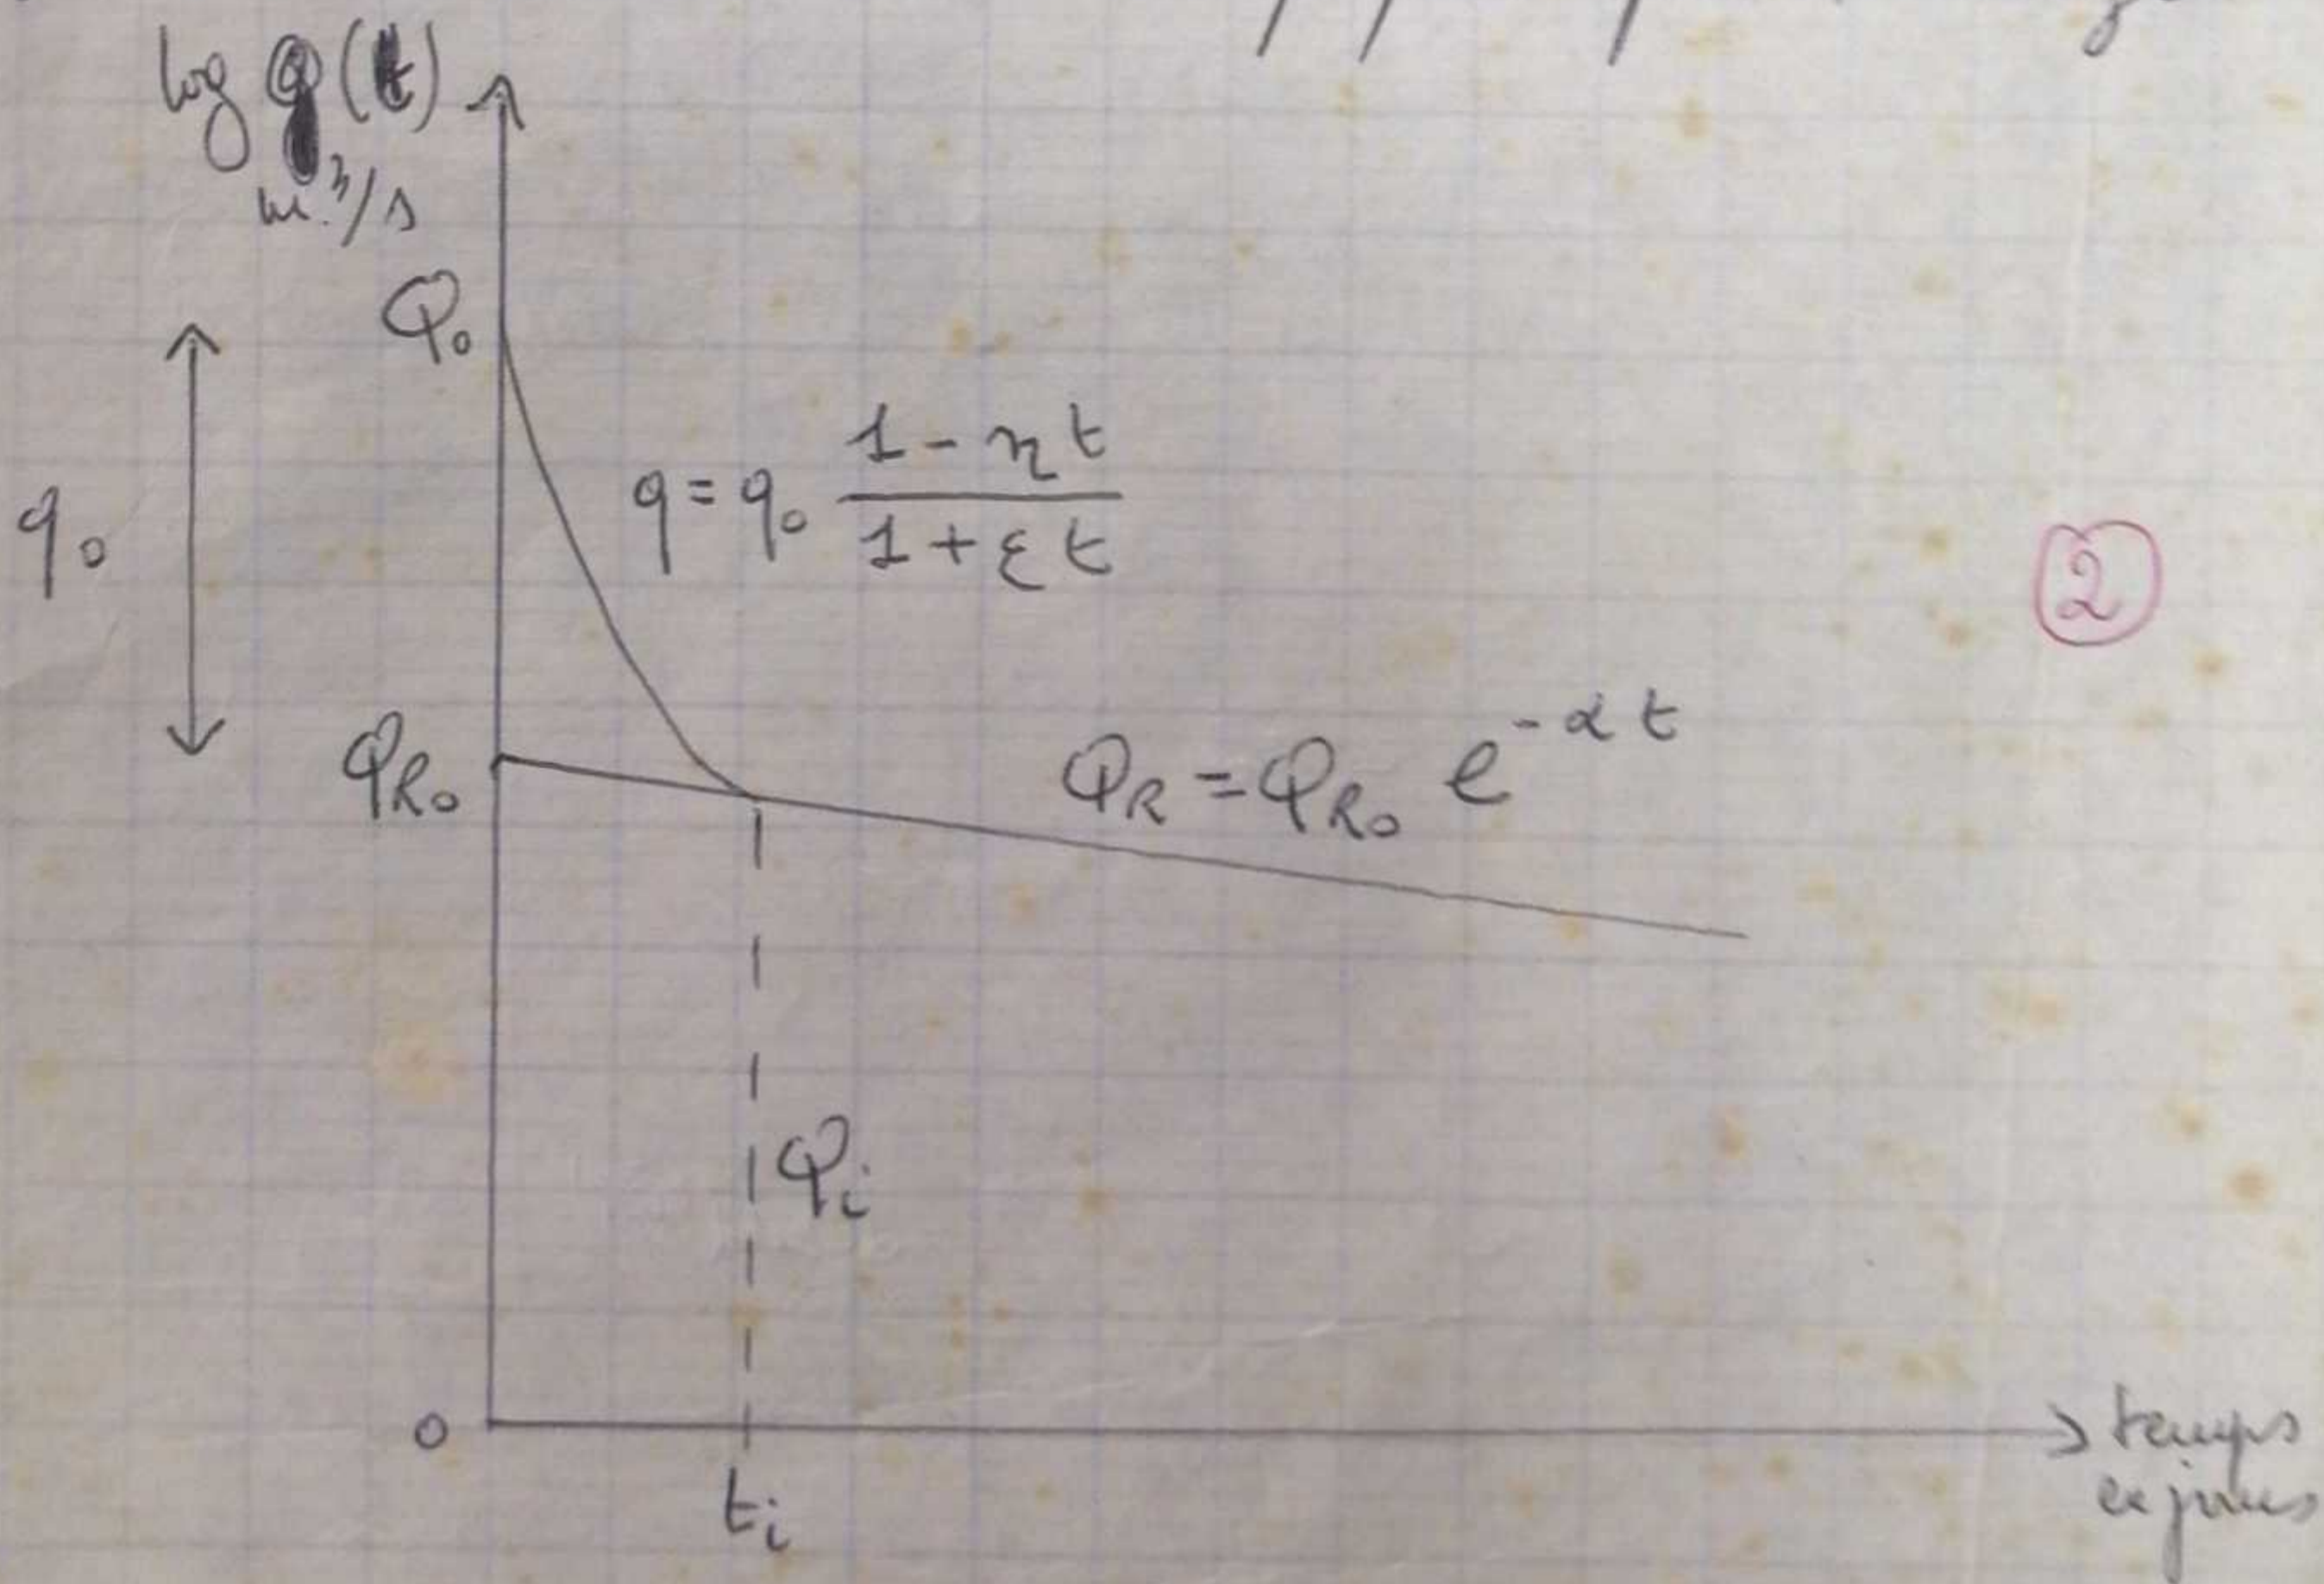 log Q(t)
m³/s
Q₀
q₀
q = q₀ (1 - ηt)/(1 + εt)
②
Q_R₀
Q_R = Q_R₀ e^(-αt)
Q_i
0
temps
en jours
t_i